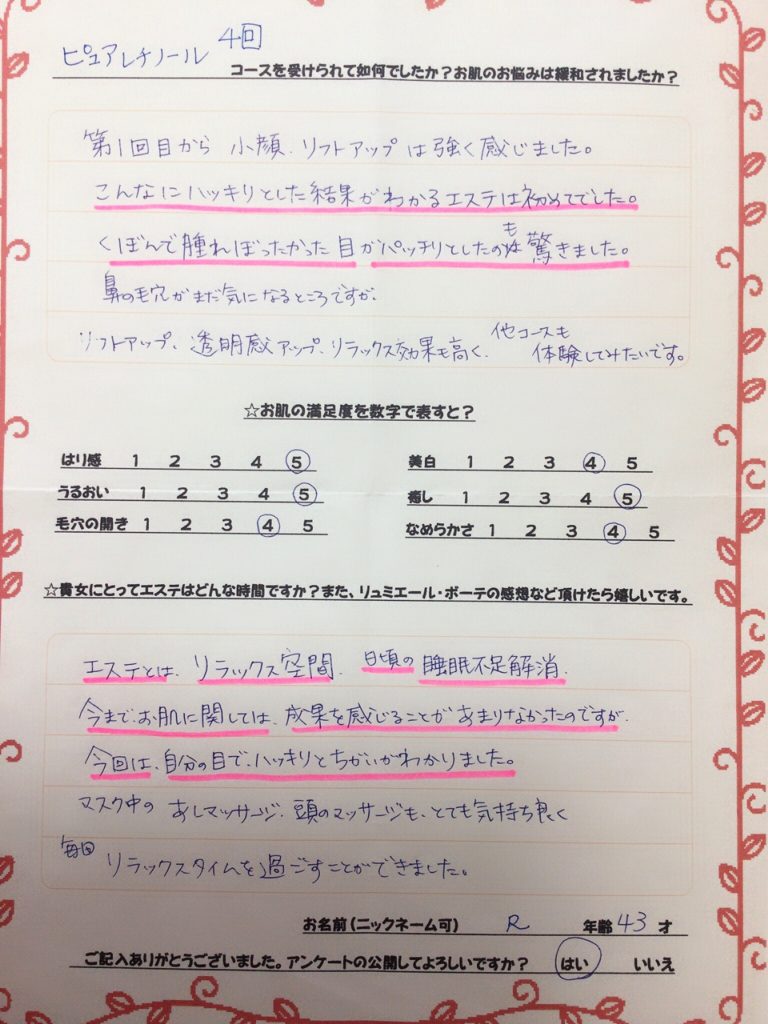 ピュアレチノール 4回
コースを受けられて如何でしたか？お肌のお悩みは緩和されましたか？
第1回目から 小顔、リフトアップは強く感じました。
こんなにハッキリとした結果がわかるエステは初めてでした。
くぼんで腫れぼったかった目がパッチリとしたのも驚きました。
鼻の毛穴がまだ気になるところですが、
リフトアップ、透明感アップ、リラックス効果も高く、他コースも
体験してみたいです。
☆お肌の満足度を数字で表すと？
はり感 1 2 3 4 5 美白 1 2 3 4 5
うるおい 1 2 3 4 5 癒し 1 2 3 4 5
毛穴の開き 1 2 3 4 5 なめらかさ 1 2 3 4 5
☆貴女にとってエステはどんな時間ですか？また、リュミエール・ボーテの感想など頂けたら嬉しいです。
エステとは、リラックス空間、日頃の睡眠不足解消、
今まで、お肌に関しては、成果を感じることがあまりなかったのですが、
今回は、自分の目で、ハッキリとちがいがわかりました。
マスク中の あしマッサージ、頭のマッサージも、とても気持ち良く
毎回 リラックスタイムを過ごすことができました。
お名前（ニックネーム可） R 年齢 43 才
ご記入ありがとうございました。アンケートの公開してよろしいですか？ はい いいえ